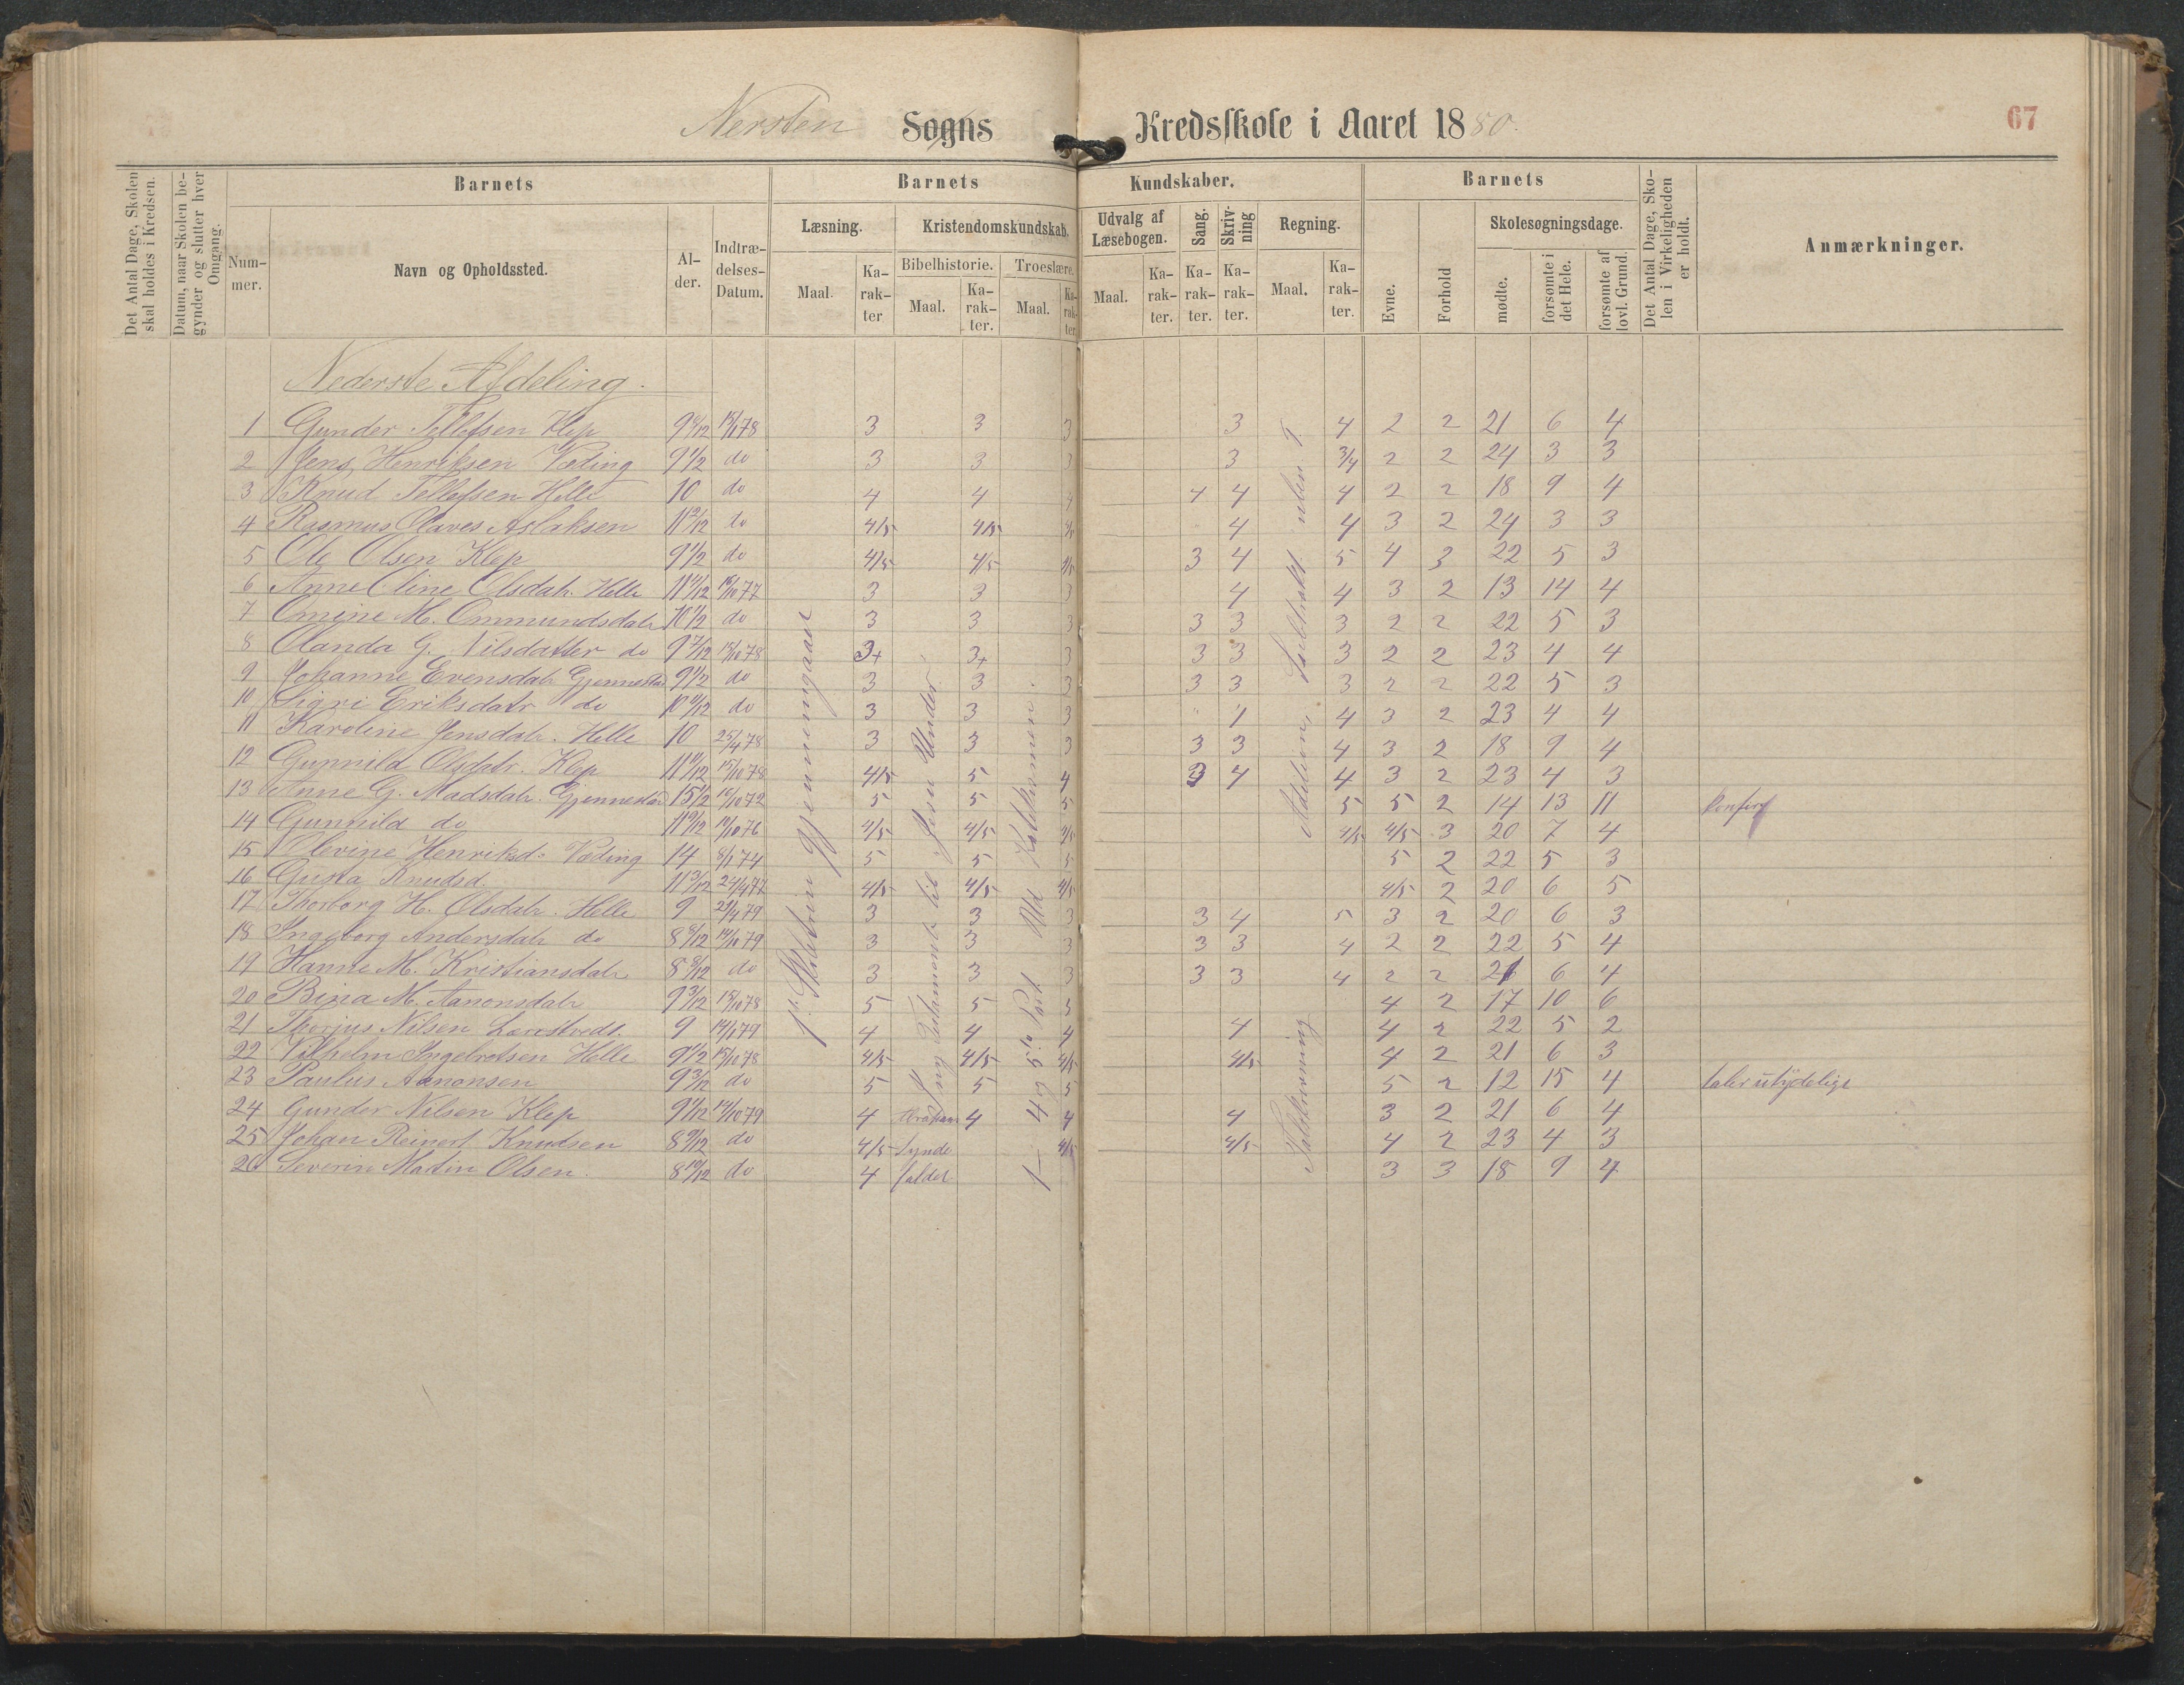 Nersten Sogns Kredsskole i Aaret 1880.
67
Det Antal Dage, Skolen skal holdes i Kredsen.
Datum, naar Skolen begynder og slutter hver Omgang.
Barnets
Nummer.
Navn og Opholdssted.
Alder.
Indtrædelses-Datum.
Barnets Kundskaber.
Læsning.
Maal.
Karakter
Kristendomskundskab.
Bibelhistorie.
Maal.
Karakter.
Troeslære.
Maal.
Karakter.
Udvalg af Læsebogen.
Maal.
Karakter.
Sang.
Karakter.
Skrivning
Karakter.
Regning.
Maal.
Karakter.
Barnets
Evne.
Forhold
Skolesøgningsdage.
mødte.
forsømte i det Hele.
forsømte af lovl. Grund.
Det Antal Dage, Skolen i Virkeligheden er holdt.
Anmærkninger.
Nederste Afdeling.
1 Gunder Tellefsen Klep 3 3 3 3 4 2 2 21 6 4
2 Jens Henriksen Væding 9 1/2 do 3 3 3 3 3/4 2 2 24 3 3
3 Knud Tellefsen Helle 10 do 4 4 4 4 4 4 2 2 18 9 4
4 Rasmus Olaves Aslaksen 11 2/12 do 4/5 4/5 4/5 4 4 3 2 24 3 3
5 Ole Olsen Klep 9 1/2 do 4/5 4/5 4/5 3 4 5 4 3 22 5 3
6 Anne Oline Olsdatr. Helle 3 3 3 4 4 3 2 13 14 4
7 Omine M. Ommundsdatr 10 1/2 do 3 3 3 3 3 3 2 2 22 5 3
8 Olanda G. Nilsdatter do 9 7/12 15/10 78 3+ 3+ 3 3 3 3 2 2 23 4 4
9 Johanne Evensdatr Gjennestad 9 1/2 do 3 3 3 3 3 3 2 2 22 5 3
10 Sigri Eriksdatr do do 3 3 3 4 4 3 2 23 4 4
11 Karoline Jensdatr. Helle 10 25/4 78 3 3 3 3 3 4 3 2 18 9 4
12 Gunnild Olsdatr. Klep 15/10 78 4/5 5 4 3 4 4 3 2 23 4 3
13 Anne G. Madsdatr. Gjennestad 15 1/2 5 5 5 5 5 2 14 13 11
14 Gunnild do 4/5 4/5 4/5 4/5 4/5 3 20 7 4
15 Olevine Henriksd. Væding 14 5 5 5 5 2 22 5 3
16 Gusta Knudsd. 11 3/12 24/4 77 4/5 4/5 4/5 4/5 2 20 6 5
17 Thorborg H. Olsdatr. Helle 9 3 3 3 3 4 5 3 2 20 6 3
18 Ingeborg Andersdatr do 3 3 3 3 3 4 2 2 22 5 4
19 Hanne M. Kristiansdatr do 3 3 3 3 3 4 2 2 21 6 4
20 Bina M. Aanonsdatr 9 3/12 15/10 78 5 5 5 4 2 17 10 6
21 Thorjus Nilsen 9 4 4 4 4 4 2 22 5 2
22 Vilhelm Ingebretsen Helle 9 1/2 15/10 78 4/5 4/5 4/5 4/5 4 2 21 6 3
23 Paulus Aanonsen 9 3/12 do 5 5 5 5 2 12 15 4 taler utydelige
24 Gunder Nilsen Klep 4 Abraham 4 4 4 3 2 21 6 4
25 Johan Reinert Knudsen do 4/5 Synde 4/5 4/5 4 2 23 4 3
26 Severin Matin Olsen. do 4 faldet 3 3 18 9 4
1ste Skoletrin gjennemgaaet
Testament til Jesu Under.
Tallskrivning